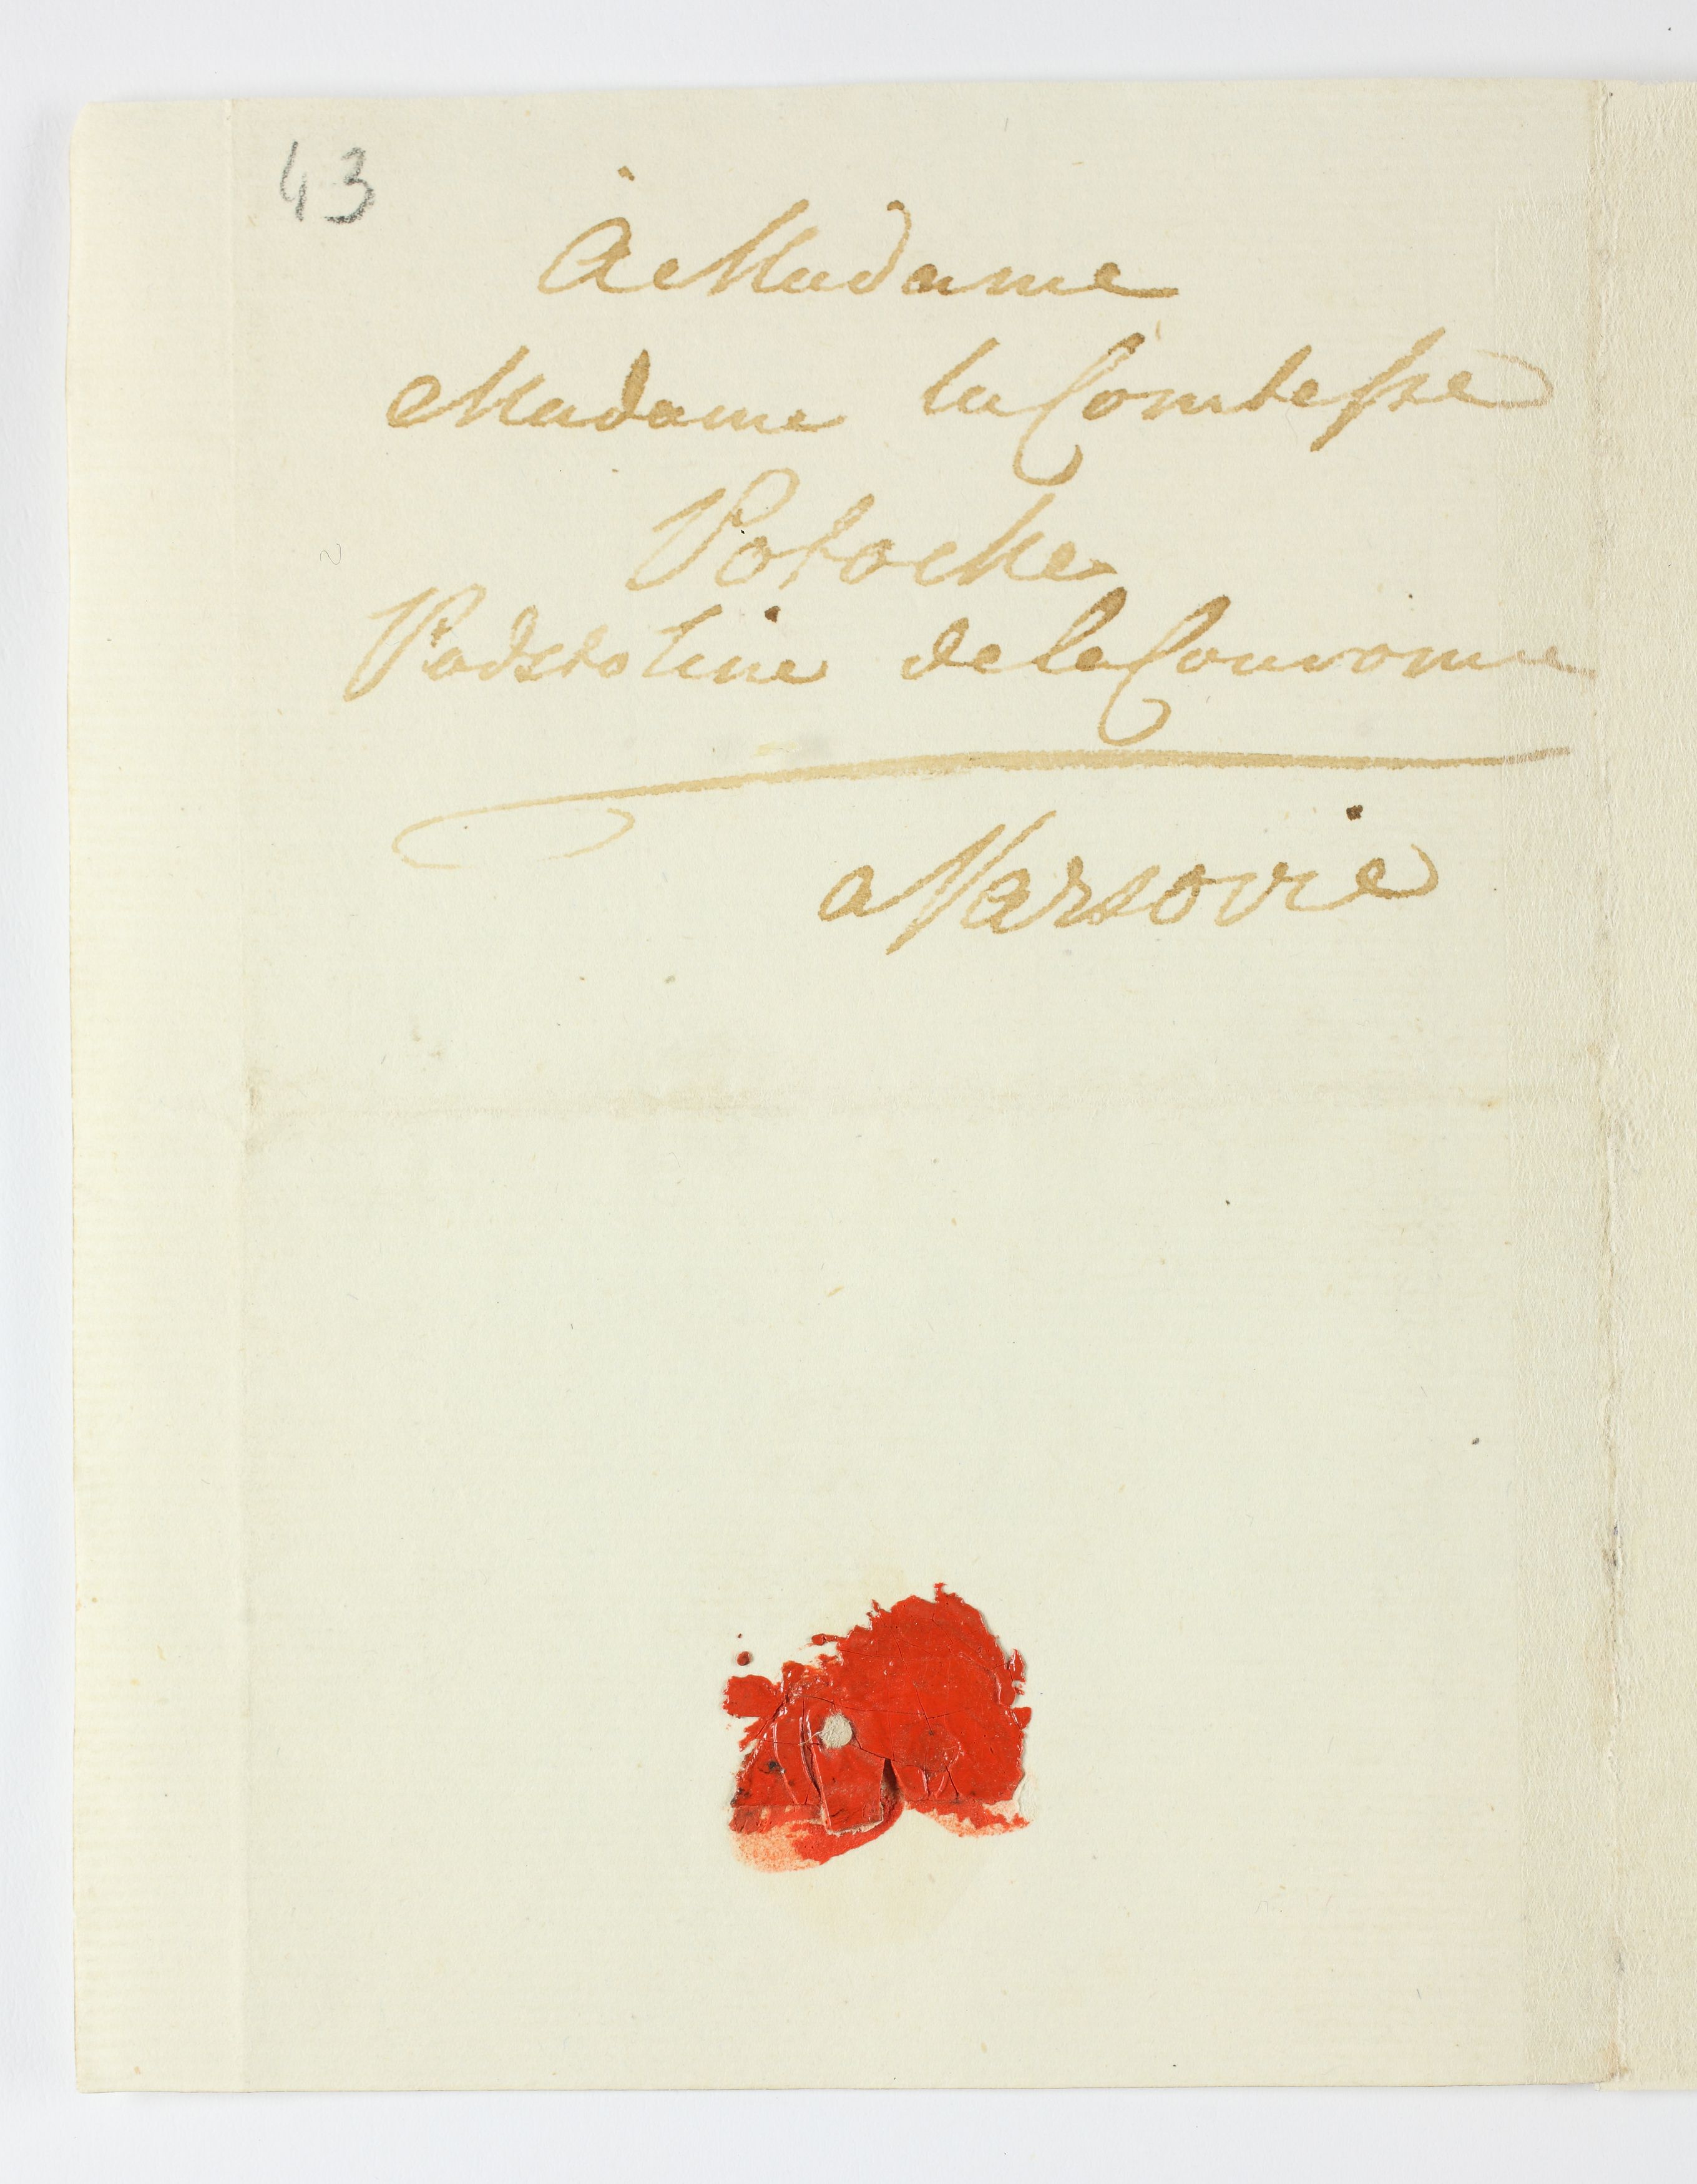 43
À Madame
Madame la Comtesse
Potocke
Podstoline de la Couronne
a Varsovie